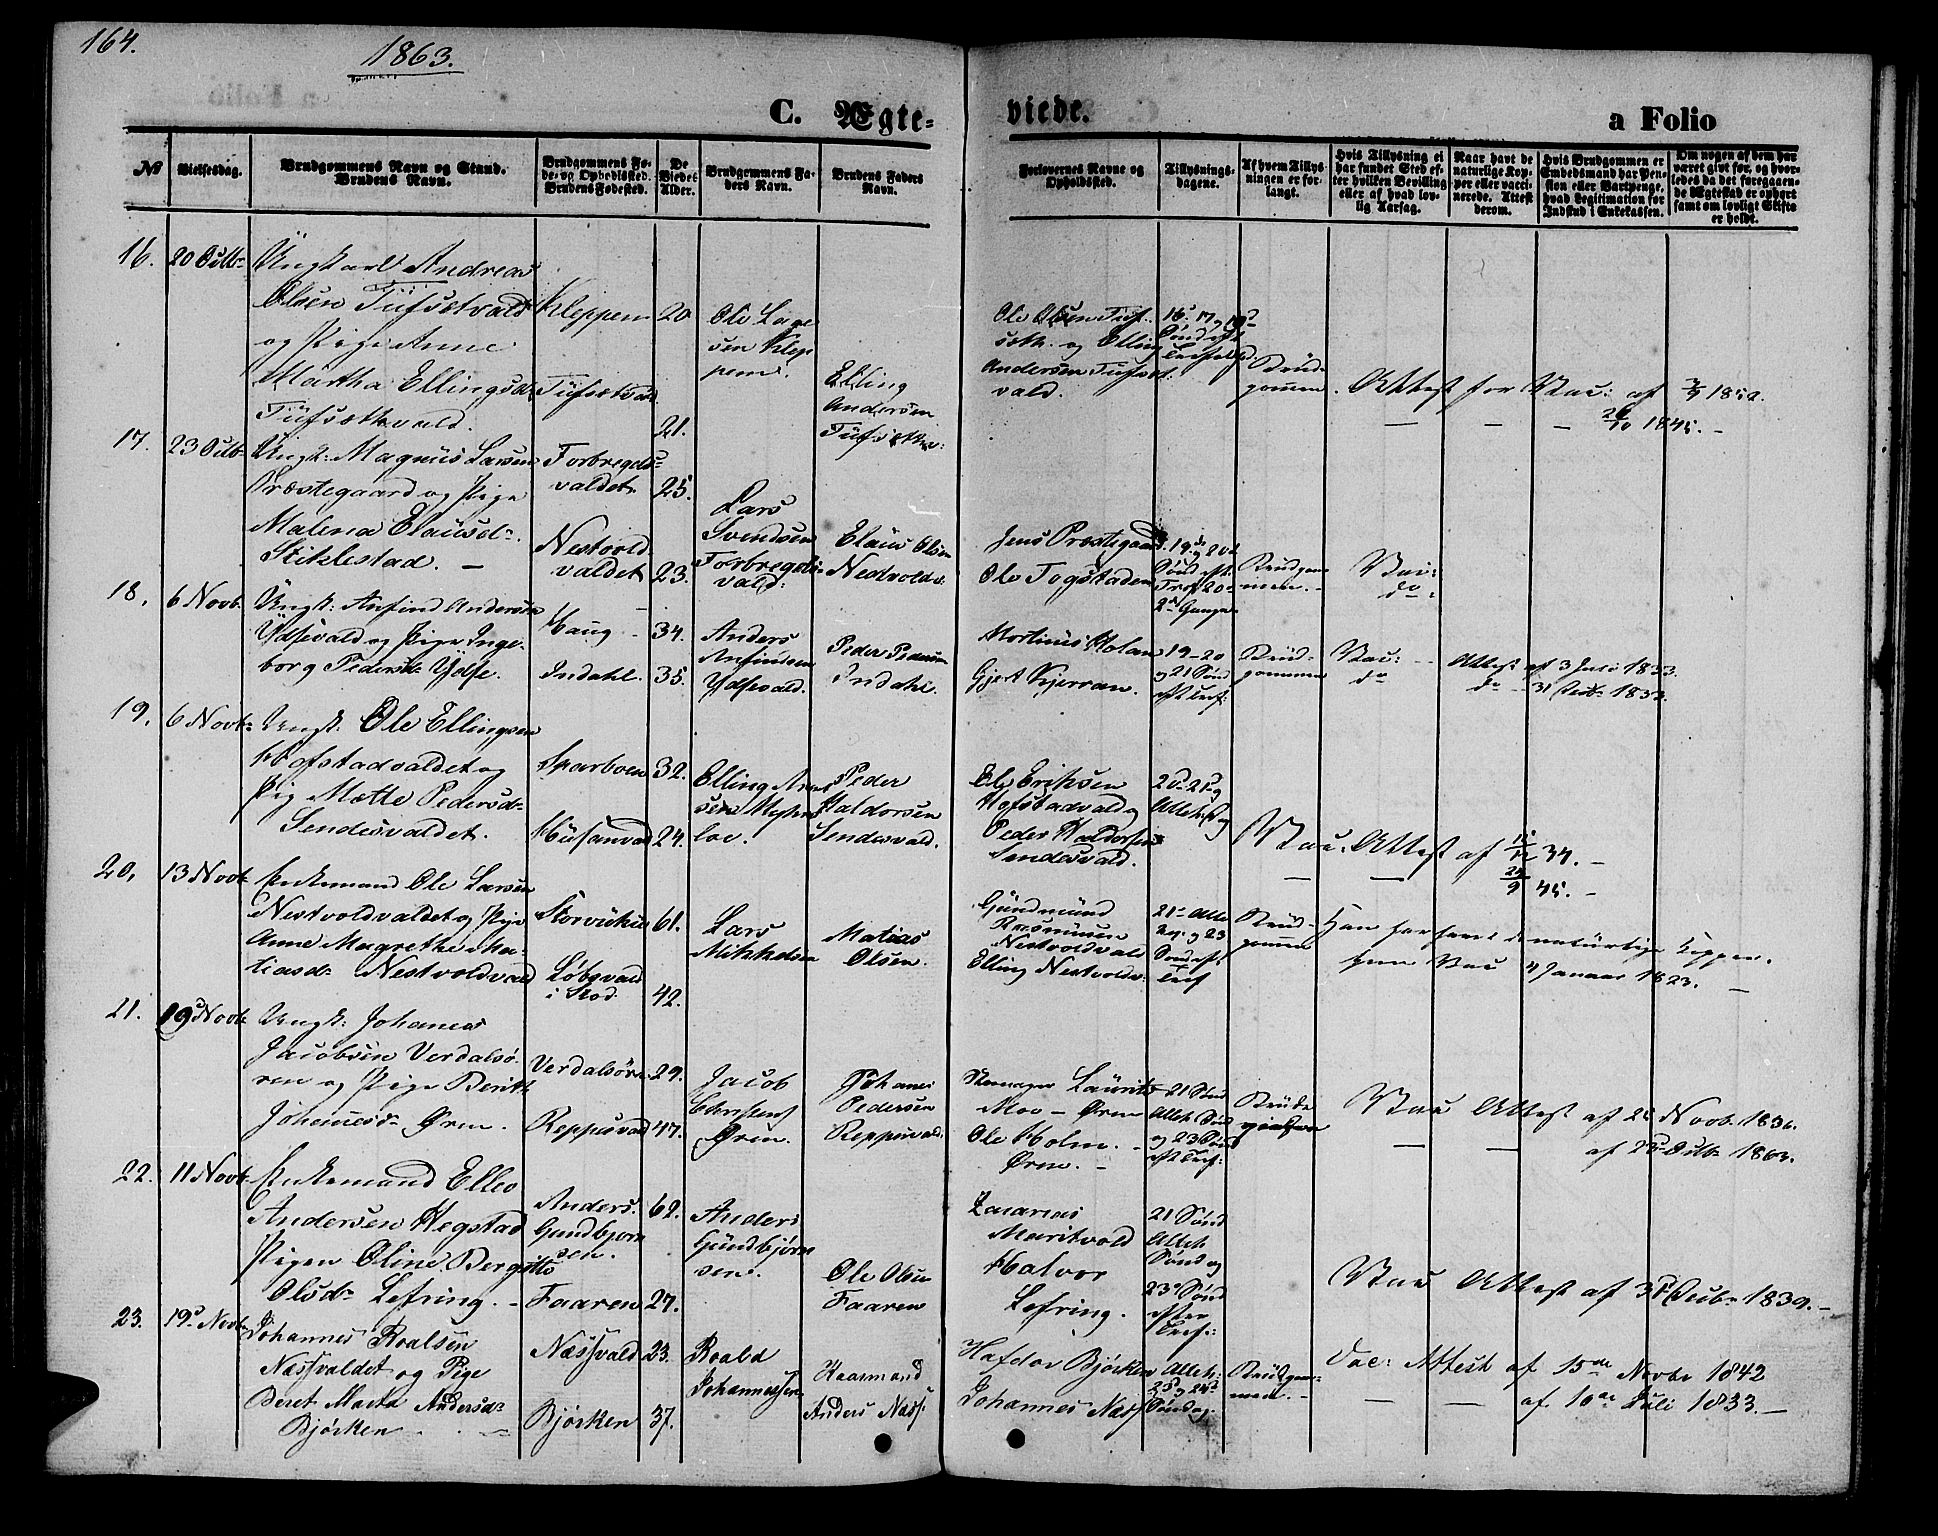 164.
1863.
C. Ægte-
viede.
a Folio
№
Vielsesdag.
Brudgommens Navn og Stand.
Brudens Navn.
Brudgommens Fø-
de- og Opholdssted.
Brudens Fødested.
De
Viedes
Alder.
Brudgommens Fa-
ders Navn.
Brudens Faders
Navn.
Forlovernes Navne og
Opholdssted.
Tillysnings-
dagene.
Af hvem Tillys-
ningen er for-
langt.
Hvis Tillysning ei
har fundet Sted ef-
ter hvilken Bevilling
eller af hvad lov-
lig Aarsag.
Naar havt de
naturlige Kop-
per eller vacci-
nerede. Attest
derom.
Hvis Brudgommen er
Embedsmand har Pen-
sion eller Vartpenge,
hvad Legitimation for
Indskud i Enkekassen.
Om nogen af dem har
været gift før, og hvor-
ledes da det foregaaen-
de Ægteskab er ophørt
samt om lovligt Skifte
er holdt.
16.
20 Octbr
Ungkarl Andreas
Olsen Tufsetvald
og Pige Anne
Martha Ellingsdr
Tufsethvald.
Kleppen
20
21.
Ole Lar
sen Klep
pem.
Elling
Andersen
Tufsethv:
Ole Olsen Tuf-
seth. og Elling
Andersen Tufset
vald.
Brud-
gommen.
Attest for Vac: af 1852.
— — — 26/10 1845. —
17.
23 Octb
Ungk: Magnus Larsen
Præstegaard og Pige
Malena Elausdr
Stiklestad. —
Forbregds-
valdet.
Nestvold
valdet
25.
23.
Lars
Svendsen
Forbregds-
vald:
Elaus Olsen
Nedvoldv:
Jens Præstegaard
Ole Fogstaden
Vac:
do
18.
6 Novb.
Ungk: Anfind Andersen
Ydsevald og Pige Inge-
borg Pedersdr Ydse.
Haug
Indahl.
34.
35.
Anders
Anfindsen
Ydsevald.
Peder Pedersen
Indahl.
Mortinus Holan
Gjert Kjerran.
19-20
og 21 Sønd
eft Tref:
Brud-
gommen
Vac: — Attest af 3 Juli 1833.
do do — 31 Octb 1833.
19.
6 Novb
Ungk: Ole Ellingsen
Hofstadvaldet og
Pig Mette Pedersdr
Sendesvaldet.
Sparboen
Husanvald
32.
24.
Elling
Peder
Haldorsen
Sendesvald.
Ole Eriksen
Hofstadvald og
Peder Haldorsen
Sendesvald.
Vac: Attest af 34. —
— — 45. —
20.
13 Novb
Enkemand Ole Larsen
Nestvoldvaldet og Pige
Anne Magrethe Ma-
tiasdr Nestvoldvald
Storviken
Løbsvald
i Stod
61.
42.
Lars
Mikkelsen
Matias
Olsen.
Gundmund
Rasmusen
Nestvoldvald
Elling Nestvoldv:
Brud-
gommen
Han har havt de naturlige Kopper.
hun Vac 4 Januar 1823. —
21.
19 Novb
Ungk: Johanes
Jacobsen Verdalsø-
ren og Pige Berith
Johanesdr Øren.
Verdalsøren
Reppesvald
29.
47.
Jacob
Christens
Øren.
Johanes
Pedersen
Reppesvald:
Laurits
Moe — Øren
Ole Holm. —
Øren. —
21 Sønd
Alleh. Sønd
og 23 Sønd
eft Tref:
Vac Attest af 24 Novb 1836.
— — af 23 Octb 1863.
22.
11 Novb
Enkemand Ellev
Andersen Hegstad
Pigen Oline Bergitte
Olsdr Lefring. —
Anders
Gundbjørn
sen.
Faaren
62.
27.
Anders
Gundbjørn
sen.
Ole Olsen
Faaren
Zacarias
Maritvold
Halvor
Lefring.
21 Sønd
Alleh
Sønd og
23 Sønd
efter
Tref:
Vac Attest af 31 Octbr 1839. —
23.
19 Novb
Johannes Roalsen
Næssvaldet og Pige
Beret Marta Andersdr
Bjørken
Næssvald
Bjørken
23.
37.
Roald
Johannessen
Huusmand
Anders Næss:
Hafdor Bjørken
Johannes Næss
Alleh:
25 og 24
Søndag.
Brudgom-
men. —
Vac: Attest af 15de Novbr 1842
— — af 10de Juli 1833. —